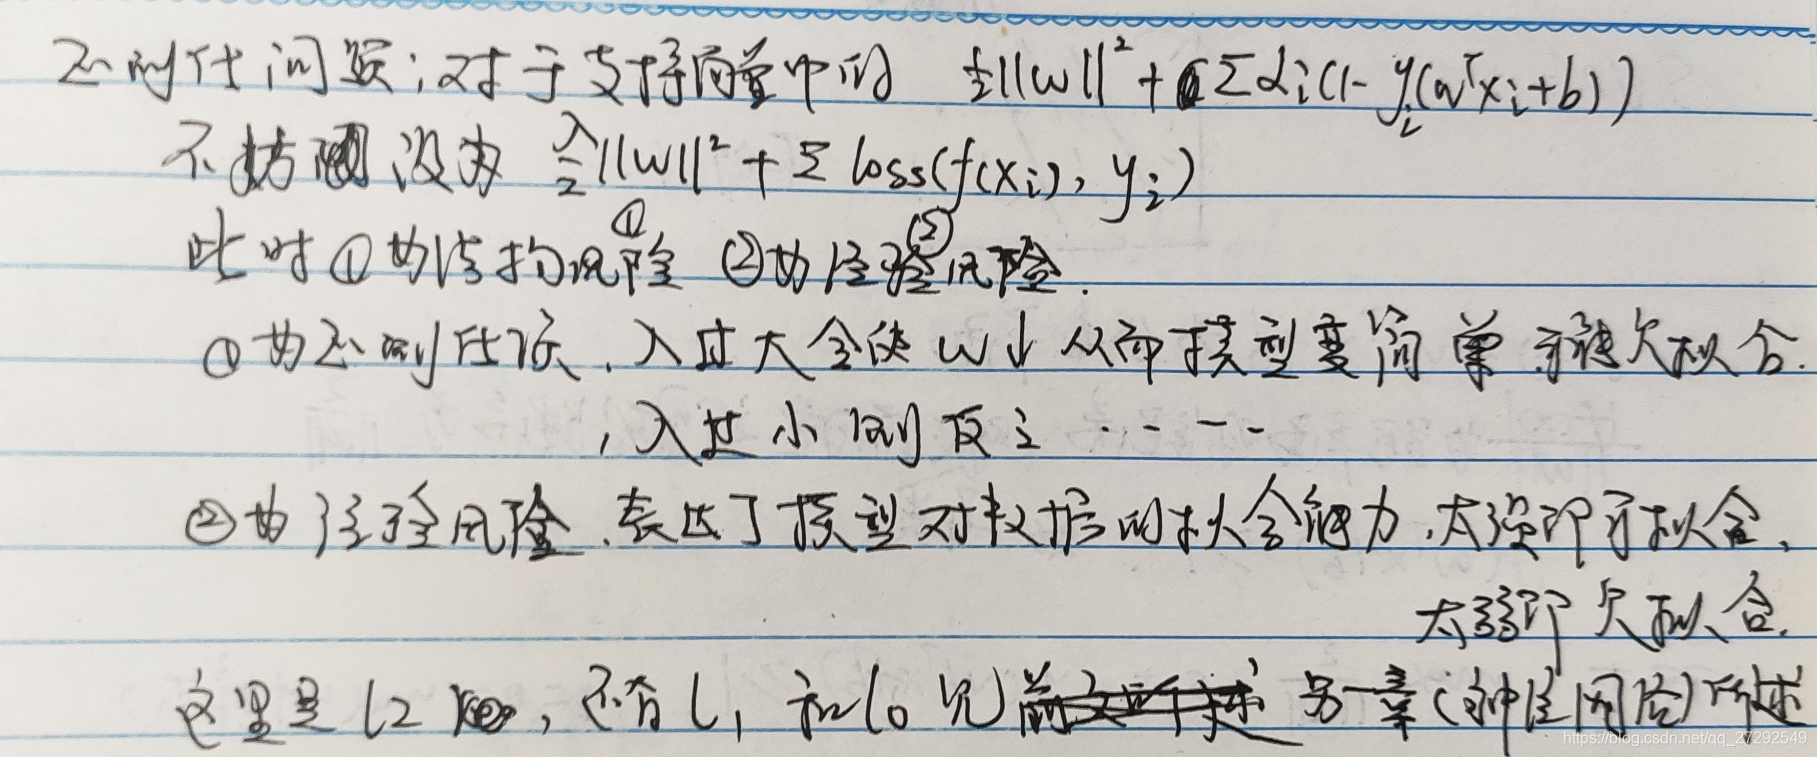 正则化问题：对于支持向量中的 ½||w||² + Σαi(1-yi(wᵀxi+b))
不妨设为 λ/2||w||² + Σ loss(f(xi), yi)
① ②
此时①为结构风险 ②为经验风险.
①为正则化项，λ过大会使w↓从而模型变简单 导致欠拟合.
，λ过小则反之 ·····
②为经验风险，表达了模型对数据的拟合能力，太强即过拟合，
太弱即欠拟合.
这里是L2，还有L1 和L0 见 另一章(神经网络)所述
https://blog.csdn.net/qq_27292549